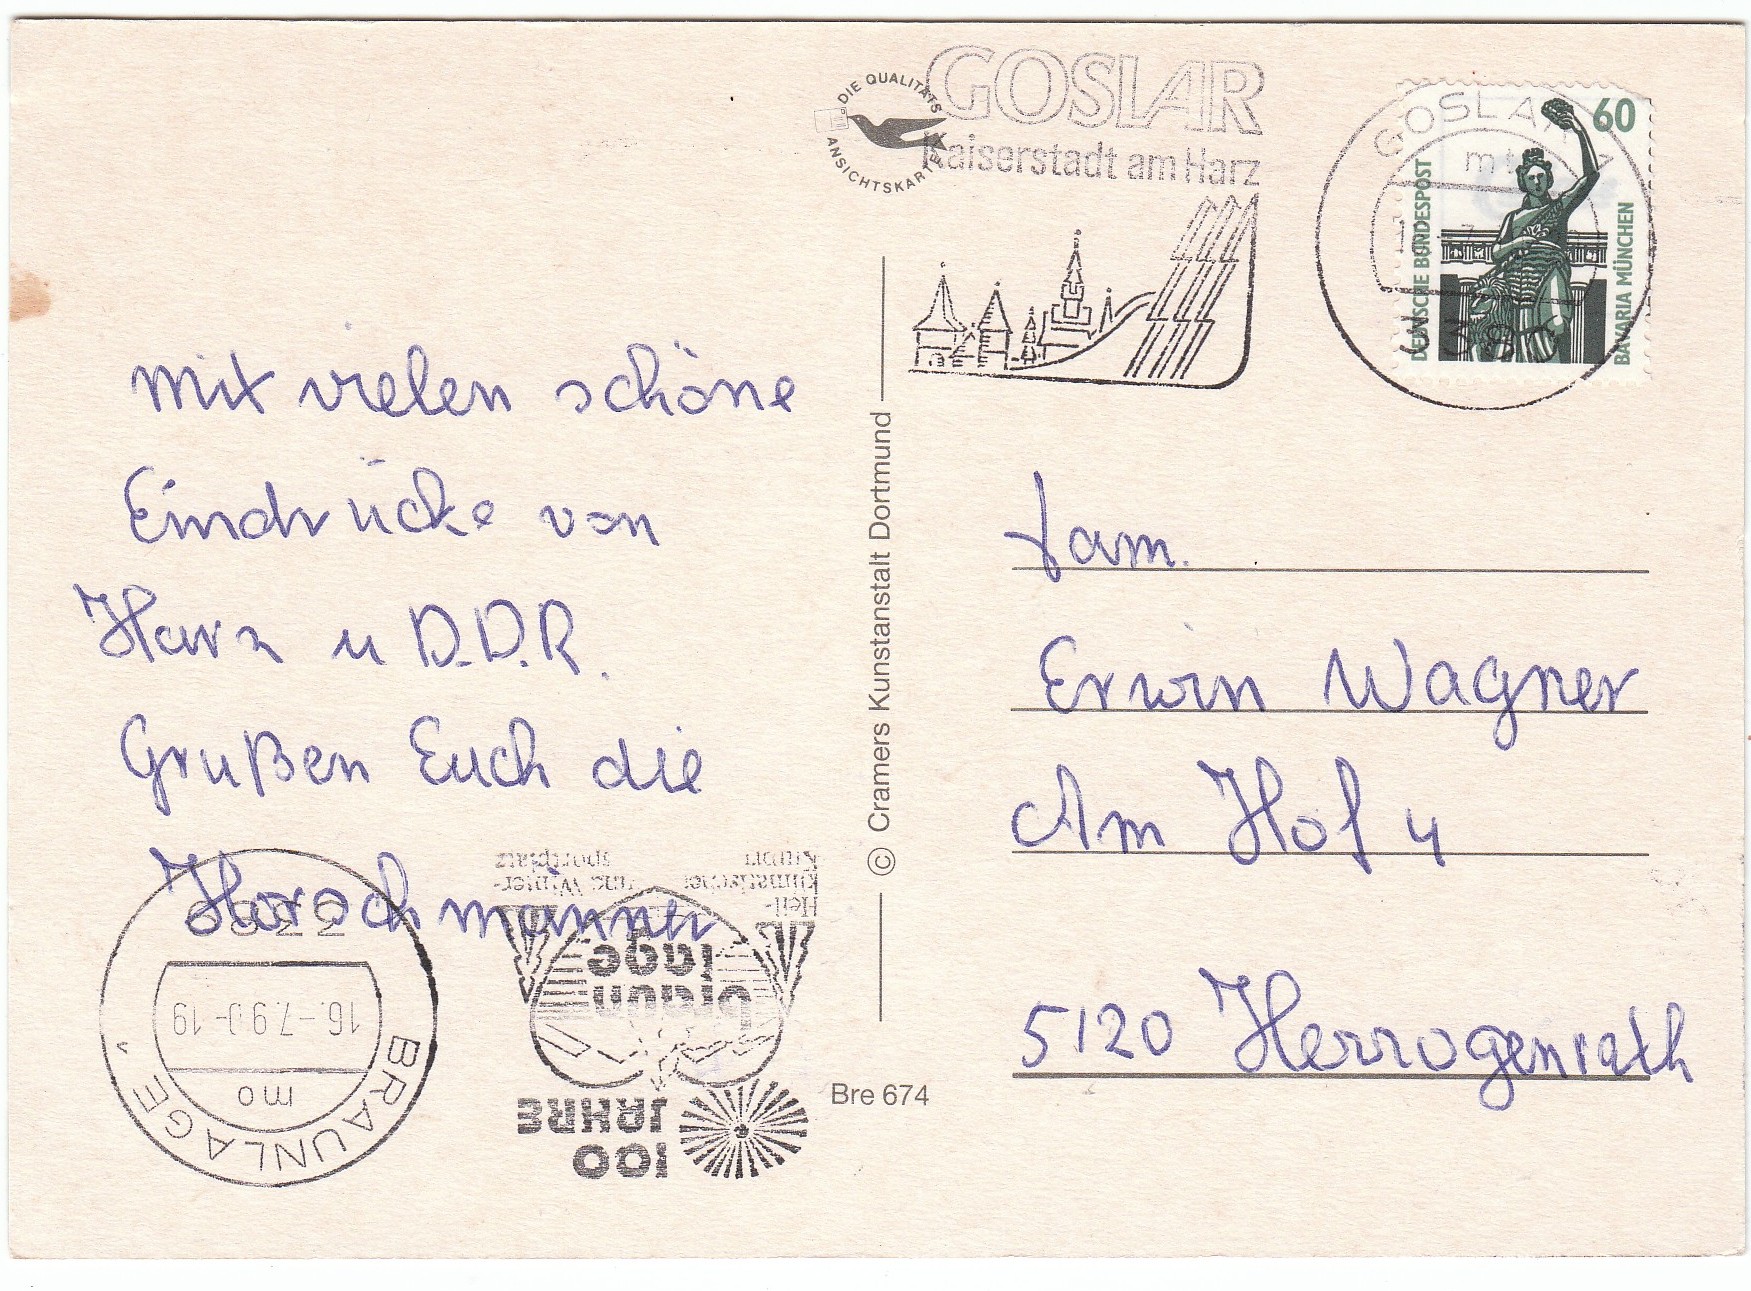 mit vielen schöne
Eindrücke von
Harz u D.D.R.
Grußen Euch die
Horschmanner
DIE QUALITÄTS
ANSICHTSKARTE
GOSLAR
Kaiserstadt am Harz
GOSLAR 1
mk
3380
60
DEUTSCHE BUNDESPOST
BAVARIA MÜNCHEN
© Cramers Kunstanstalt Dortmund
Fam.
Erwin Wagner
Am Hof 4
5120 Herzogenrath
Bre 674
BRAUNLAGE
mo
16.-7.90-19
100
JAHRE
braun
lage
Heil-
klimatischer
Kurort
und Winter-
sportplatz